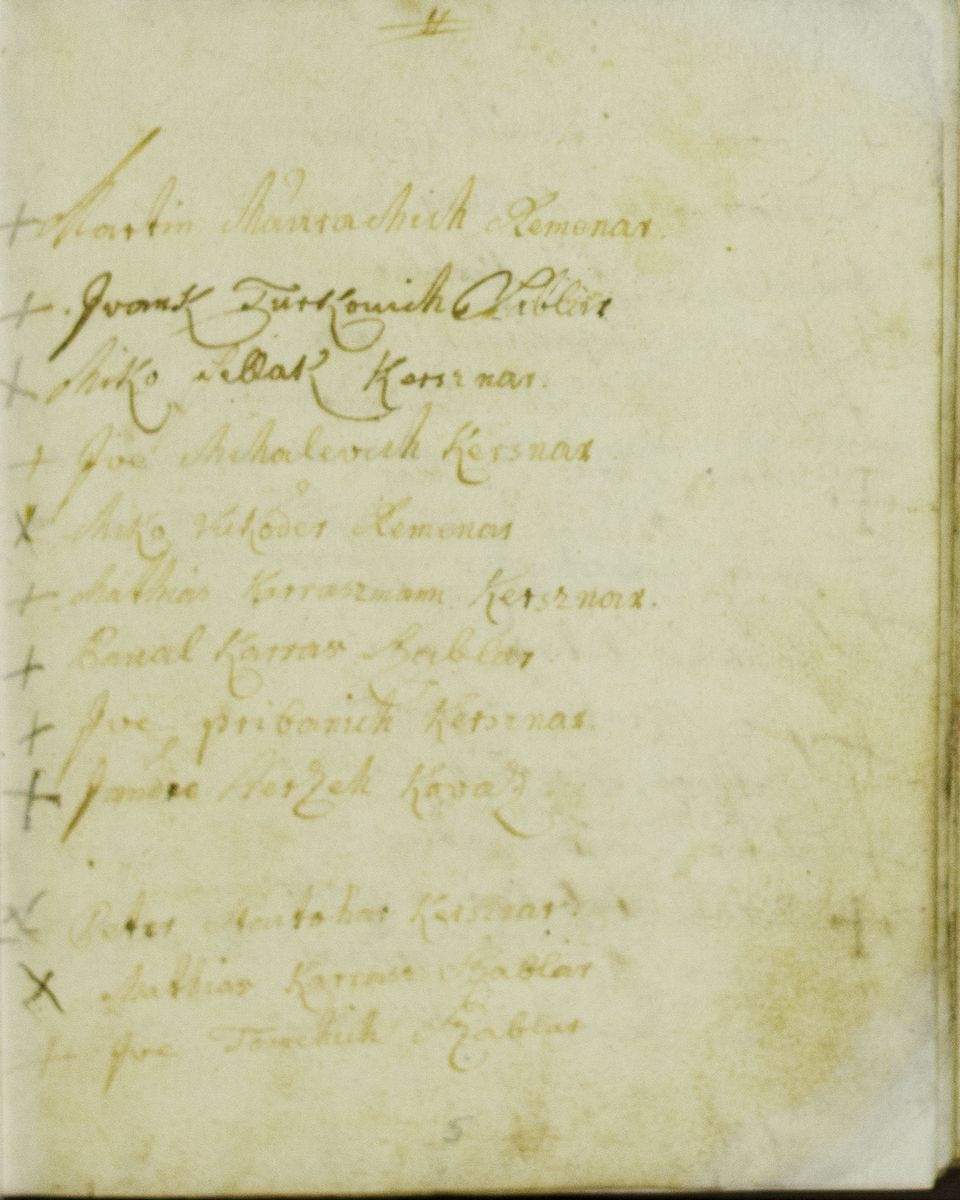 + Martin Maurachich Remenar.
+ Ivank Turkouich Szablar
+ Miko Sebbak Kersznar.
+ Ive Mihalevich Kersnar
x Miko Vukoder Remenar
+ Mathias Karraszmann Kersznar.
+ Karras Szablar
+ Ive pribanich Kersznar.
+ Herzeh Kovatz
x Peter Kersznar
x Mathias Karrasz Szablar
+ Ive Tomchich Szablar
5